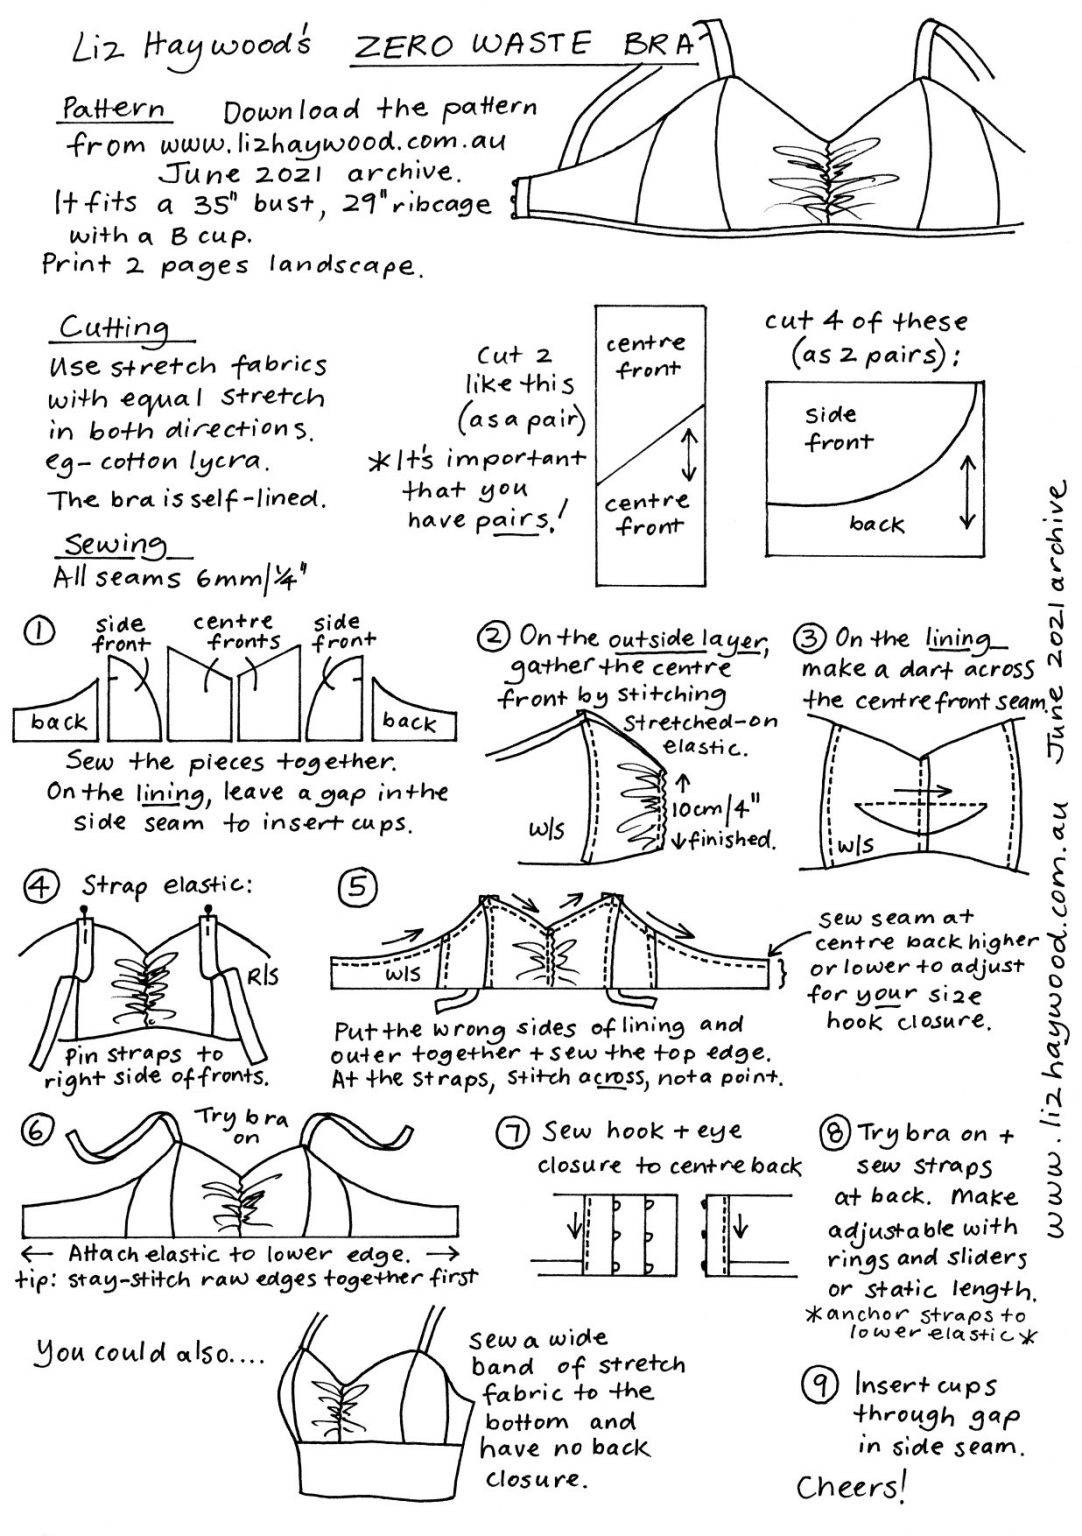 Liz Haywood's ZERO WASTE BRA
Pattern Download the pattern
from www.lizhaywood.com.au
June 2021 archive.
It fits a 35" bust, 29" ribcage
with a B cup.
Print 2 pages landscape.
Cutting
Use stretch fabrics
with equal stretch
in both directions.
eg- cotton lycra.
The bra is self-lined.
cut 2
like this
(as a pair)
*It's important
that you
have pairs!
centre
front
centre
front
cut 4 of these
(as 2 pairs):
side
front
back
Sewing
All seams 6mm/¼"
① side
front
centre
fronts
side
front
back
back
Sew the pieces together.
On the lining, leave a gap in the
side seam to insert cups.
② On the outside layer,
gather the centre
front by stitching
stretched-on
elastic.
w/s
10cm/4"
finished.
③ On the lining
make a dart across
the centre front seam.
w/s
④ Strap elastic:
R/s
Pin straps to
right side of fronts.
⑤
w/s
sew seam at
centre back higher
or lower to adjust
for your size
hook closure.
Put the wrong sides of lining and
outer together + sew the top edge.
At the straps, stitch across, not a point.
⑥ Try bra
on
Attach elastic to lower edge.
tip: stay-stitch raw edges together first
⑦ Sew hook + eye
closure to centre back
⑧ Try bra on +
sew straps
at back. Make
adjustable with
rings and sliders
or static length.
*anchor straps to
lower elastic*
You could also....
sew a wide
band of stretch
fabric to the
bottom and
have no back
closure.
⑨ Insert cups
through gap
in side seam.
Cheers!
www.lizhaywood.com.au June 2021 archive